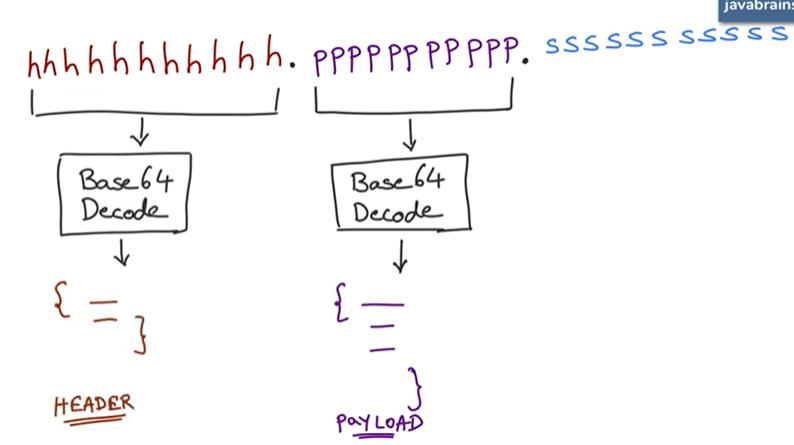 javabrains
hhhhhhhhhhh. PPPPPPPPPPP. sssssssssss
Base64 Base64
Decode Decode
{ }
{ }
HEADER
PAYLOAD